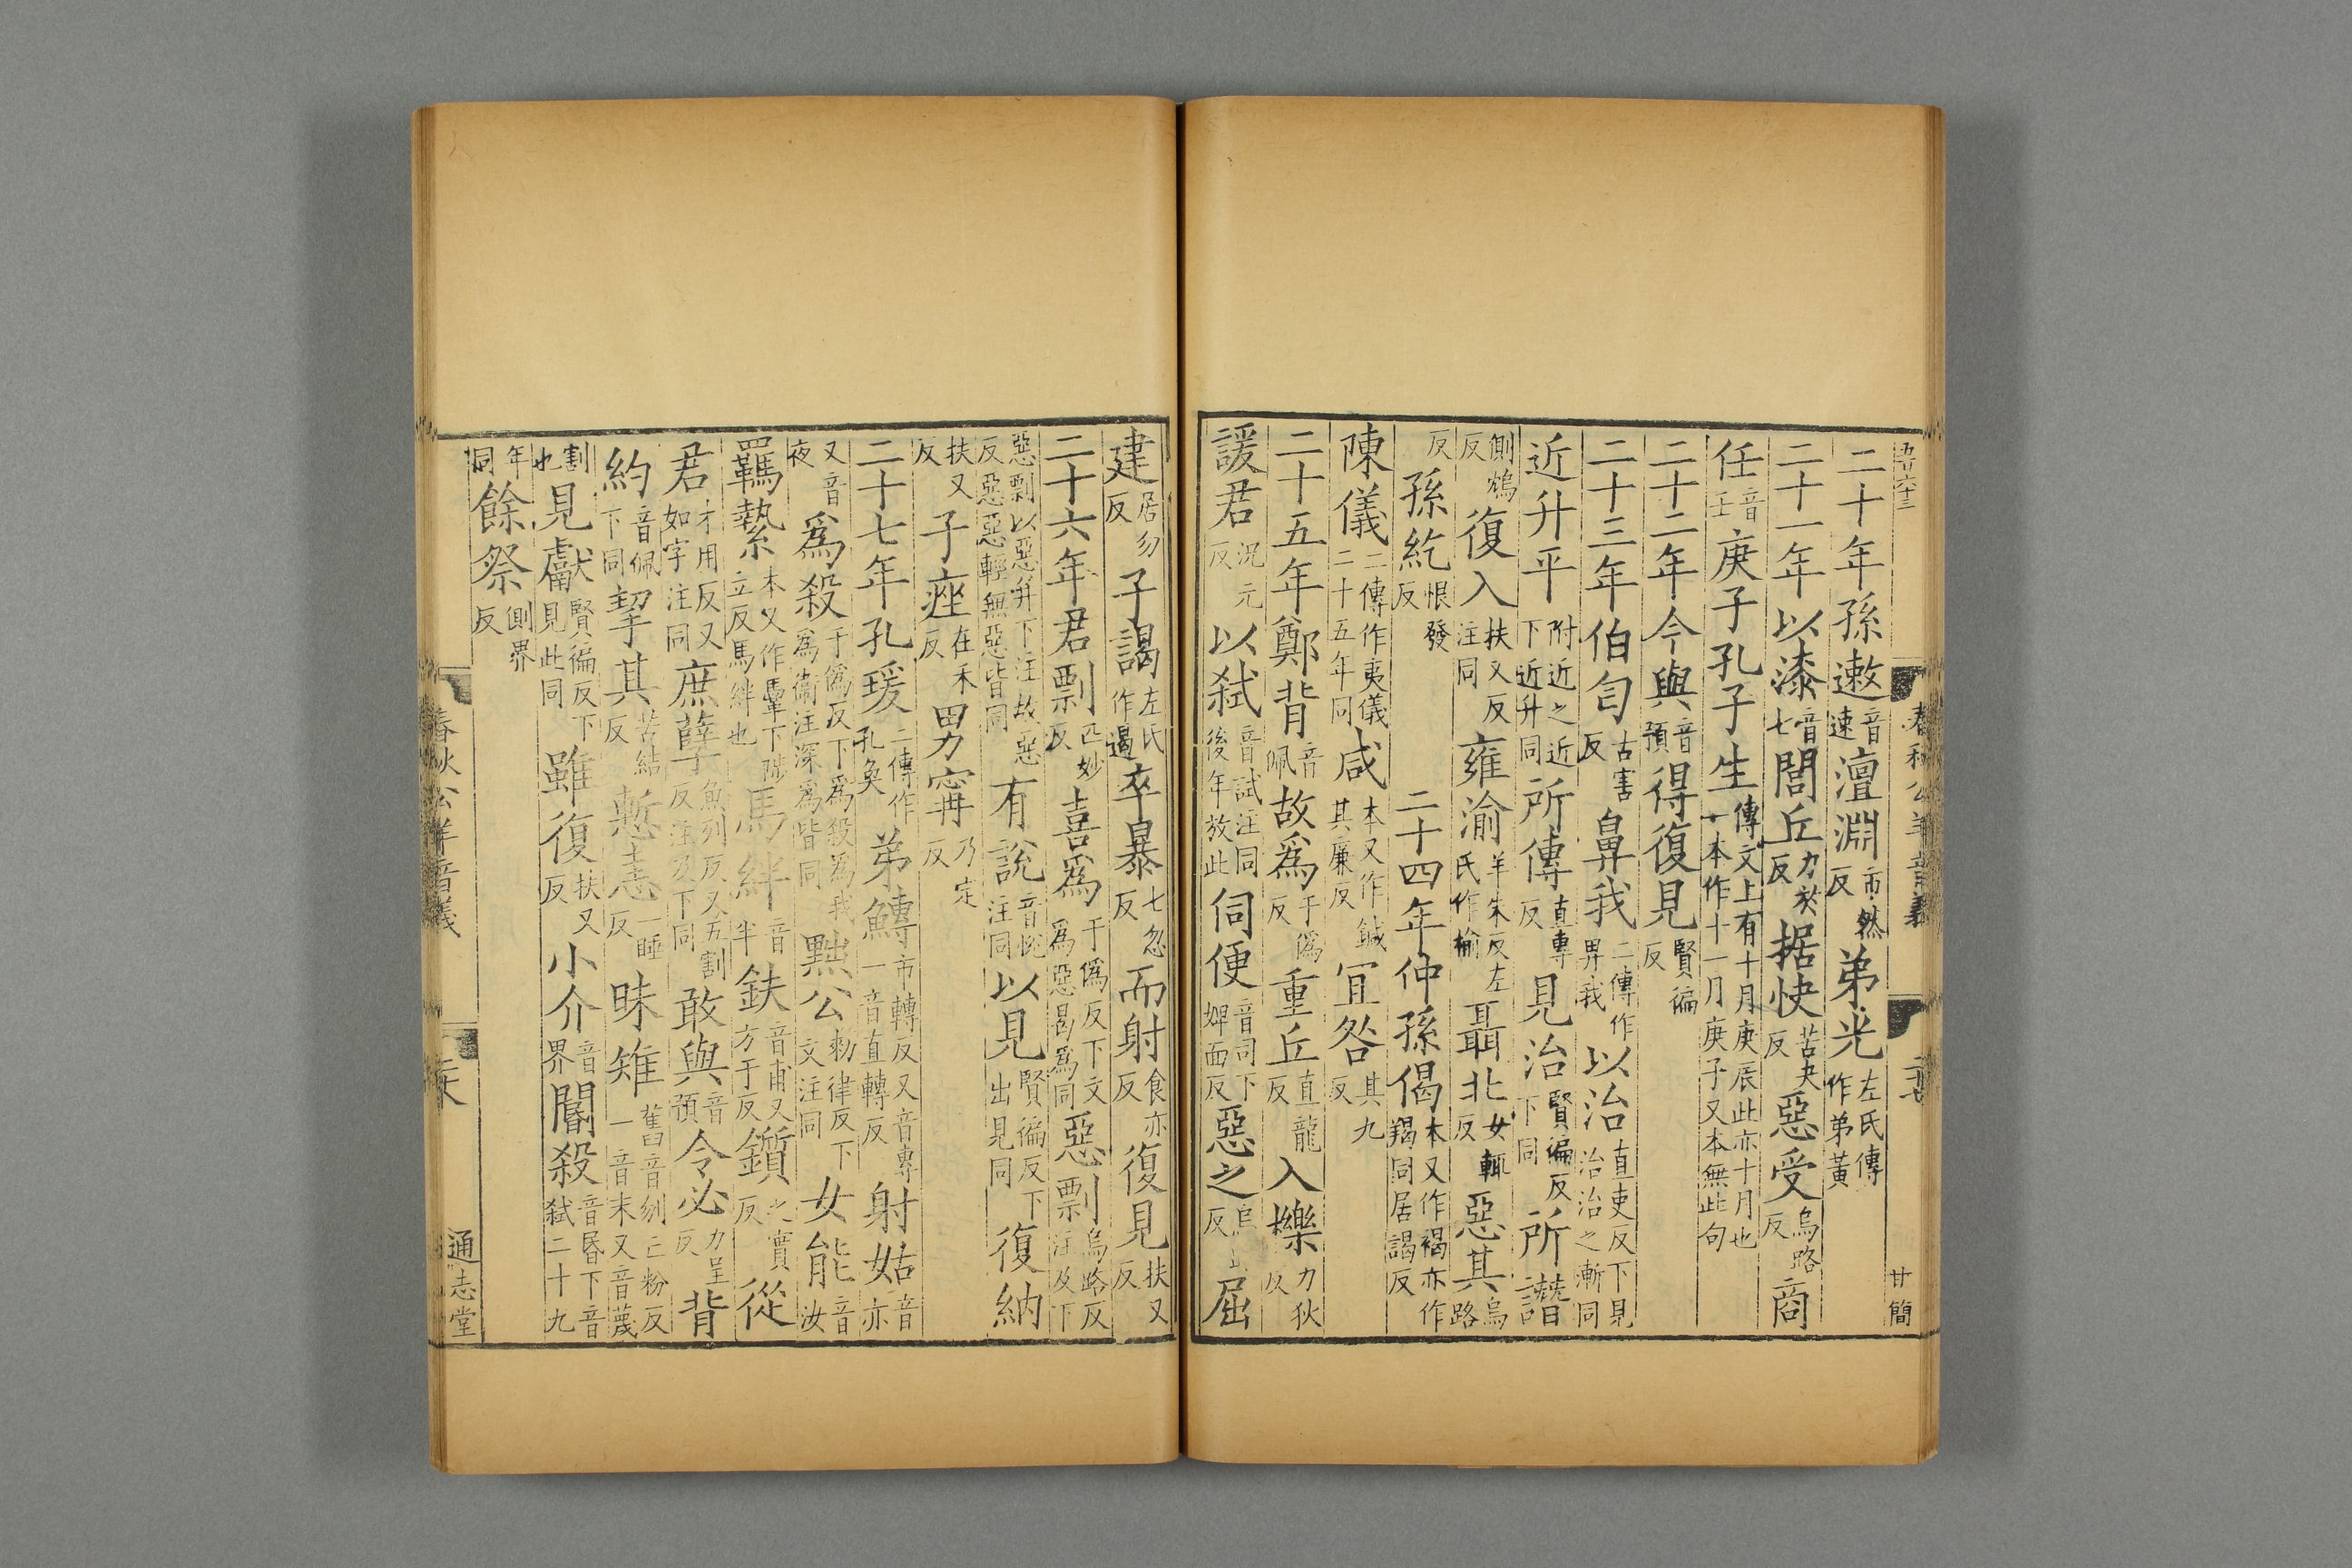 二十年孫遬音速澶淵市然反弟光左氏傳作弟黃
二十一年以漆音七閭丘力於反据快苦夬反惡受烏路反商
任音壬庚子孔子生傳文上有十月庚辰此亦十月也一本作十一月庚子又本無此句
二十二年今與音預得復見賢徧反
二十三年伯匄古害反鼻我二傳作畀我以治直吏反下見治治之漸同
近升平附近之近下近升同所傳直專反見治賢徧反下同所譖
側鴆反復入扶又反注同雍渝羊朱反左氏作榆聶北女輒反惡其烏路
反孫紇恨發反二十四年仲孫偈本又作褐亦作羯同居謁反
陳儀二傳作夷儀二十五年同咸本又作鍼其廉反宜咎其九反
二十五年鄭背音佩故爲于僞反重丘直龍反入櫟力狄反
諼君況元反以弑音試注同後年放此伺便音司下婢面反惡之烏反屈
建居勿反子謁左氏作遏卒暴七忽反而射食亦反復見扶又反
二十六年君剽匹妙反喜爲于僞反下文爲惡曷爲同惡剽烏路反注及下
惡剽以惡幷下注故惡反惡惡輕無惡皆同有說音悅注同以見賢徧反下出見同復納
扶又反子痤在禾反男甯乃定反
二十七年孔瑗二傳作孔奐弟鱄市轉反又音專一音直轉反射姑音亦
又音夜爲殺于僞反下爲殺爲我爲衞注深爲皆同黜公勑律反下文注同女能音汝
羈縶本又作馽下陟立反馬絆也馬絆音半鈇音甫又方于反鑕之實反從
君才用反又如字注同庶孽魚列反又五割反注及下同敢與音預令必力呈反背
約音佩下同挈其苦結反慙恚一睡反昧雉舊音刎亡粉反一音末又音蔑
割也見獻賢徧反下見此同雖復扶又反小介音界閽殺音昏下音弑二十九
年同餘祭側界反
春秋公羊音義
通志堂
甘簡